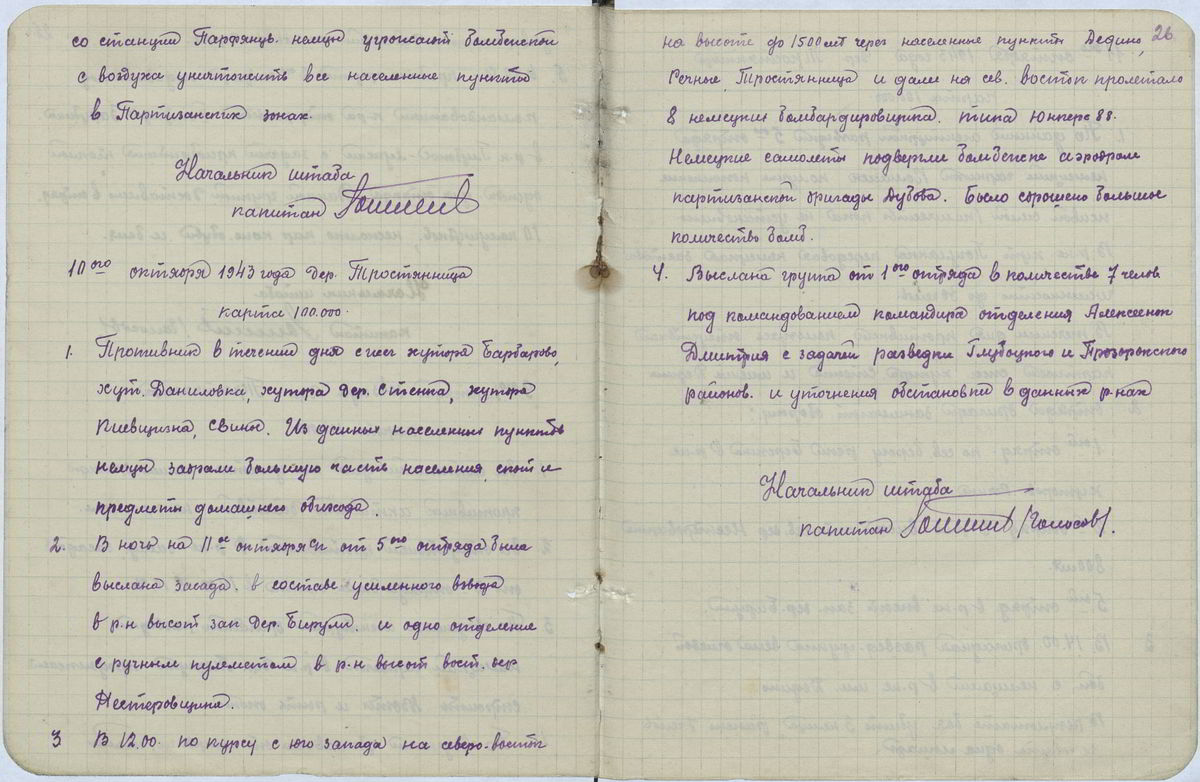 со станции Парфянув. немцы угрожают бомбежкой
с воздуха уничтожить все населенные пункты
в Партизанских зонах.
Начальник штаба
капитан
10го октября 1943 года дер. Тростянница
карта 100.000.
1. Противник в течении дня сжег хутора Барбарово,
хут. Даниловка, хутора дер. Стенка, хутора
Киевщизна, Свилы. Из данных населенных пунктов
немцы забрали большую часть населения, скот и
предметы домашнего обихода.
2. В ночь на 11ое октября от 5ого отряда была
выслана засада. в составе усиленного взвода
в р-н высот зап. дер. Бирули. и одно отделение
с ручным пулеметом в р-н высот вост. дер
Нестеровщина.
3 В 12.00. по курсу с юго запада на северо-восток
26
на высоте до 1500 мт через населенные пункты Дедино,
Речные, Тростянница и дали на сев. восток пролетало
8 немецких бомбардировщика. типа Юнкерс 88.
Немецкие самолеты подвергли бомбежке аэродром
партизанской бригады Дубова. Было сброшено большое
количество бомб.
4. Выслана группа от 1ого отряда в количестве 7 челов
под командованием командира отделения Алексеенок
Дмитрия с задачей разведки Глубоцкого и Прозорокского
районов. и уточнения обстановки в данных р-нах
Начальник штаба
капитан /Голосов/.